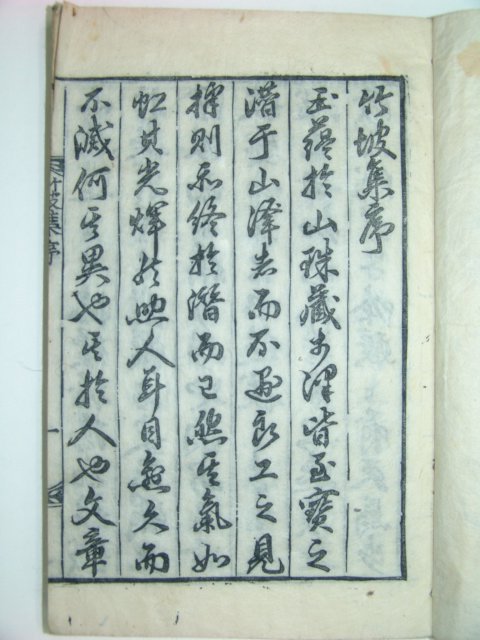 竹坡集序
玉蘊於山珠藏于澤皆至寶之
潛于山澤者而不遇良工之見
採則亦終於潛而已然其氣如
虹其光輝於照人耳目愈久而
不滅何其異也其於人也文章
竹坡集序
一